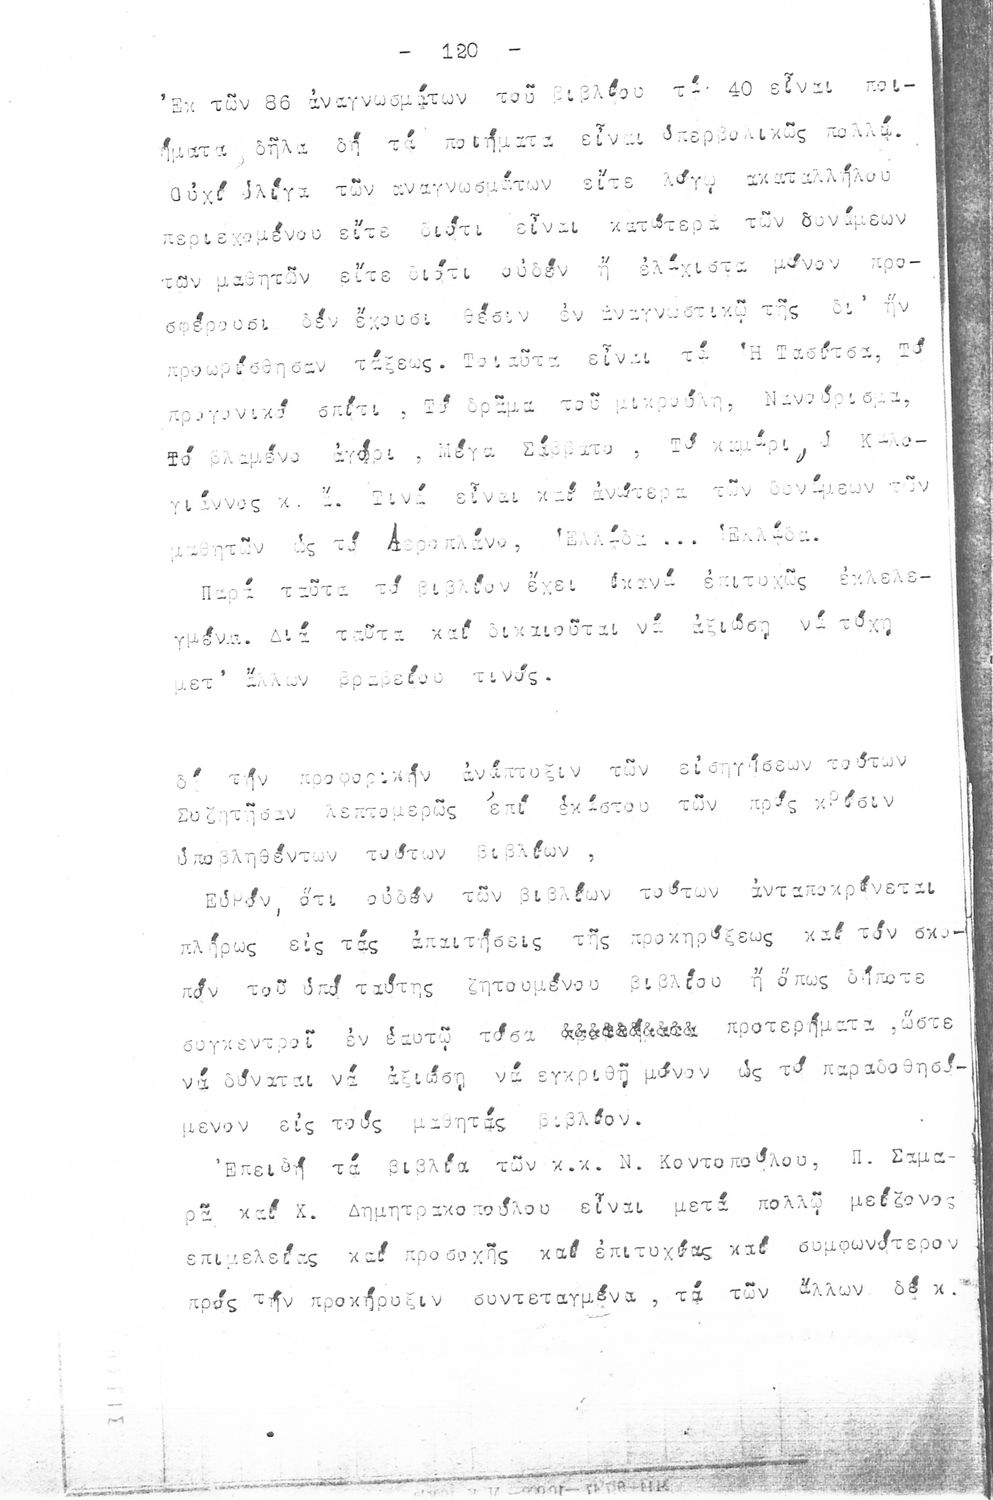 - 120 -
Ἐκ τῶν 86 ἀναγνωσμάτων τοῦ βιβλίου τά 40 εἶναι ποι-
ήματα, δῆλα δή τά ποιήματα εἶναι ὑπερβολικῶς πολλά.
Οὐχί ὀλίγα τῶν ἀναγνωσμάτων εἴτε λόγῳ ἀκαταλλήλου
περιεχομένου εἴτε διότι εἶναι κατώτερα τῶν δυνάμεων
τῶν μαθητῶν εἴτε διότι οὐδέν ἤ ἐλάχιστα μόνον προ-
σφέρουσι δέν ἔχουσι θέσιν ἐν ἀναγνωστικῷ τῆς δι' ἥν
προωρίσθησαν τάξεως. Τοιαῦτα εἶναι τά Ἡ Τασίτσα, Τό
προγονικό σπίτι, Τό δρᾶμα τοῦ μικρούλη, Νανούρισμα,
Τό βλαμένο ἀγόρι, Μέγα Σάββατο, Τό καμάρι, ὁ Καλο-
γιάννος κ. ἄ. Τινά εἶναι καί ἀνώτερα τῶν δυνάμεων τῶν
μαθητῶν ὡς τό Ἀεροπλάνο, Ἑλλάδα ... Ἑλλάδα.
Παρά ταῦτα τό βιβλίον ἔχει ἱκανά ἐπιτυχῶς ἐκλελε-
γμένα. Διά ταῦτα καί δικαιοῦται νά ἀξιώσῃ νά τύχῃ
μετ' ἄλλων βραβείου τινός.
δέ τήν προφορικήν ἀνάπτυξιν τῶν εἰσηγήσεων τούτων
Συζητῆσαν λεπτομερῶς ἐπί ἑκάστου τῶν πρός κρίσιν
ὑποβληθέντων τούτων βιβλίων,
Εὑρόν, ὅτι οὐδέν τῶν βιβλίων τούτων ἀνταποκρίνεται
πλήρως εἰς τάς ἀπαιτήσεις τῆς προκηρύξεως καί τόν σκο-
πόν τοῦ ὑπό ταύτης ζητουμένου βιβλίου ἤ ὅπως δήποτε
συγκεντροῖ ἐν ἑαυτῷ τόσα προτερήματα, ὥστε
νά δύναται νά ἀξιώσῃ νά εγκριθῇ μόνον ὡς τό παραδοθησό-
μενον εἰς τούς μαθητάς βιβλίον.
Ἐπειδή τά βιβλία τῶν κ.κ. Ν. Κοντοπούλου, Π. Σαμα-
ρᾶ καί Χ. Δημητρακοπούλου εἶναι μετά πολλῷ μείζονος
επιμελείας καί προσοχῆς καί ἐπιτυχίας καί συμφωνότερον
πρός τήν προκήρυξιν συντεταγμένα, τά τῶν ἄλλων δέ κ.